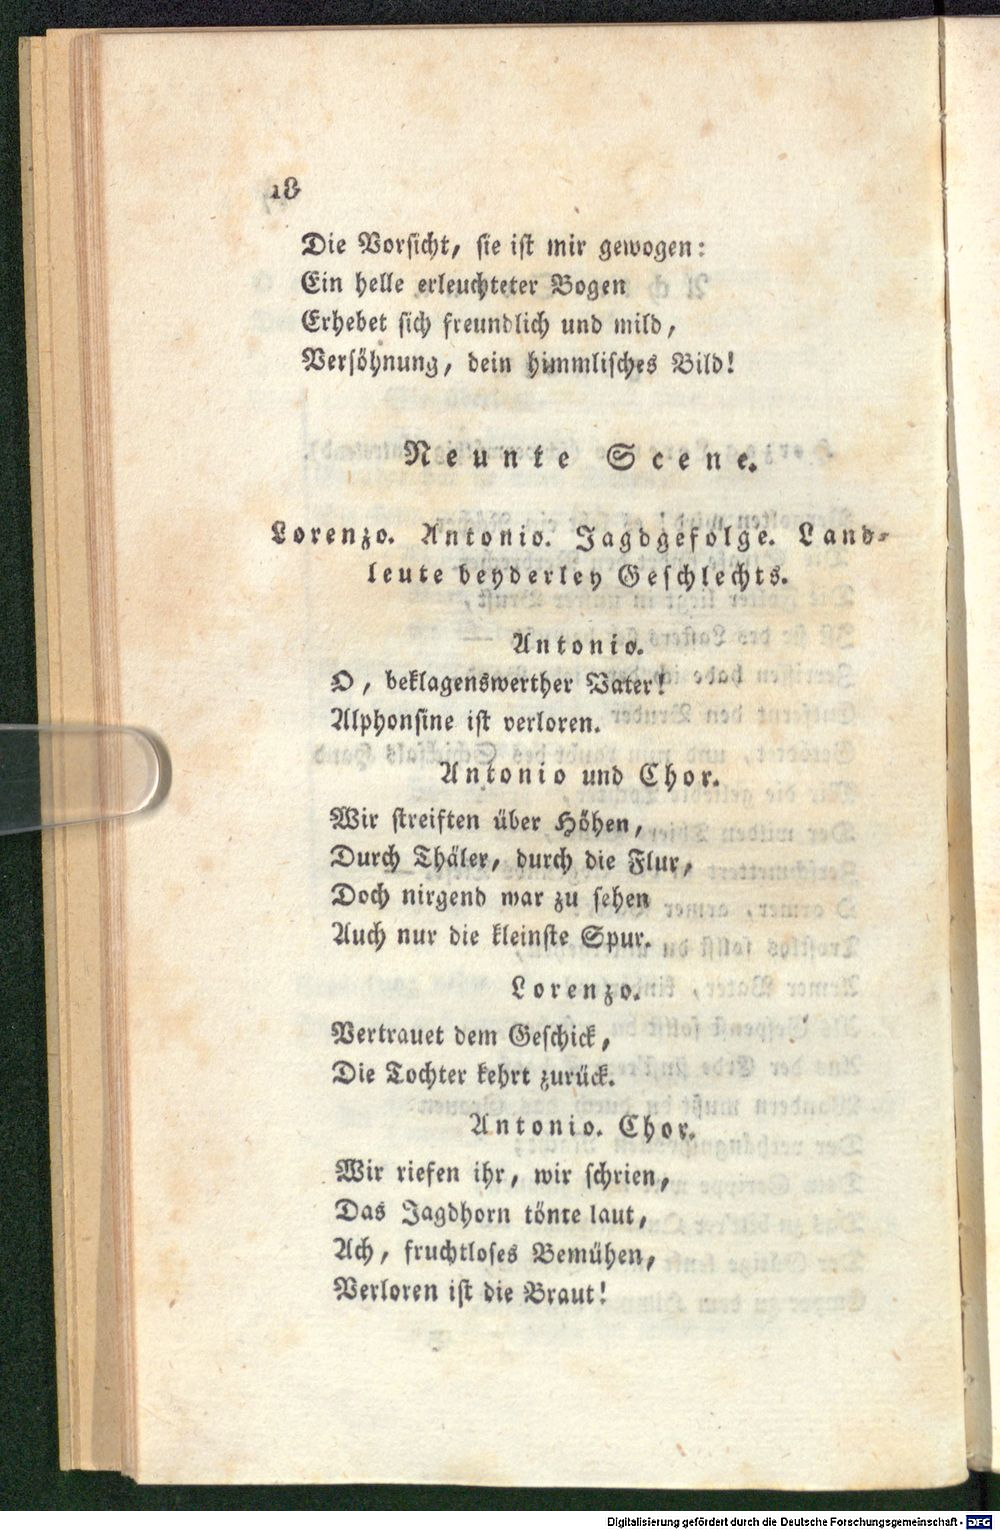 18
Die Vorsicht, sie ist mir gewogen:
Ein helle erleuchteter Bogen
Erhebet sich freundlich und mild,
Versöhnung, dein himmlisches Bild!
Neunte Scene.
Lorenzo. Antonio. Jagdgefolge. Land-
leute beyderley Geschlechts.
Antonio.
O, beklagenswerther Vater!
Alphonsine ist verloren.
Antonio und Chor.
Wir streiften über Höhen,
Durch Thäler, durch die Flur,
Doch nirgend war zu sehen
Auch nur die kleinste Spur.
Lorenzo.
Vertrauet dem Geschick,
Die Tochter kehrt zurück.
Antonio. Chor.
Wir riefen ihr, wir schrien,
Das Jagdhorn tönte laut,
Ach, fruchtloses Bemühen,
Verloren ist die Braut!
Digitalisierung gefördert durch die Deutsche Forschungsgemeinschaft - DFG